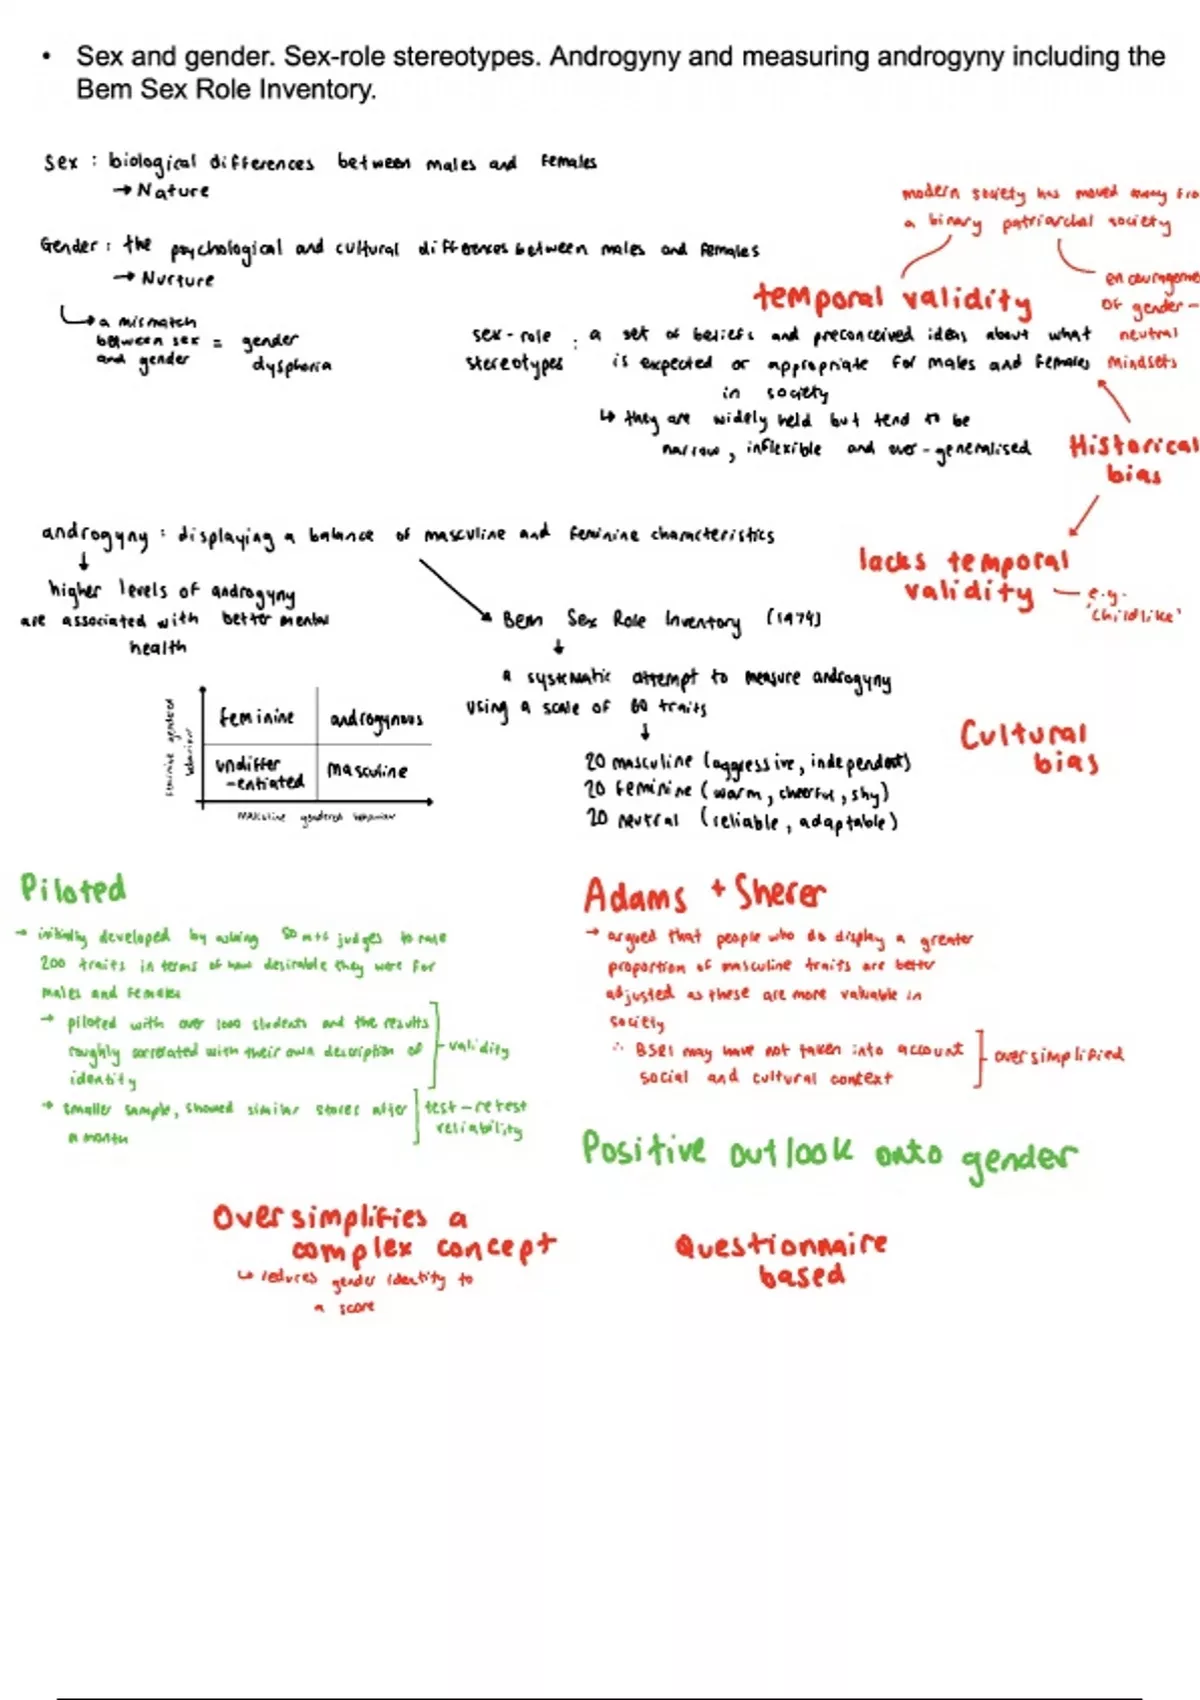 • Sex and gender. Sex-role stereotypes. Androgyny and measuring androgyny including the
Bem Sex Role Inventory.
Sex : biological differences between males and females
→ Nature
Gender : the psychological and cultural differences between males and females
→ Nurture
↳ a mismatch
between sex = gender
and gender dysphoria
modern society has moved away fro
a binary patriarchal society
encourageme
of gender-
neutral
mindsets
temporal validity
sex-role : a set of beliefs and preconceived ideas about what
stereotypes is expected or appropriate for males and females
in society
↳ they are widely held but tend to be
narrow, inflexible and over-generalised
Historical
bias
lacks temporal
validity
e.g.
'childlike'
androgyny : displaying a balance of masculine and feminine characteristics
↓
higher levels of androgyny
are associated with better mental
health
Bem Sex Role Inventory (1974)
↓
a systematic attempt to measure androgyny
using a scale of 60 traits
↓
20 masculine (aggressive, independent)
20 feminine (warm, cheerful, shy)
20 neutral (reliable, adaptable)
Cultural
bias
feminine gendered
behaviour
feminine
androgynous
undiffer
-entiated
masculine
masculine gendered behaviour
Piloted
→ initially developed by asking 50 m+f judges to rate
200 traits in terms of how desirable they were for
males and females
→ piloted with over 1000 students and the results
roughly correlated with their own description of
identity
validity
→ smaller sample, showed similar scores after
a month
test-retest
reliability
Adams + Sherer
→ argued that people who do display a greater
proportion of masculine traits are better
adjusted as these are more valuable in
society
∴ BSRI may have not taken into account
social and cultural context
oversimplified
Positive outlook onto gender
Oversimplifies a
complex concept
↳ reduces gender identity to
a score
Questionnaire
based